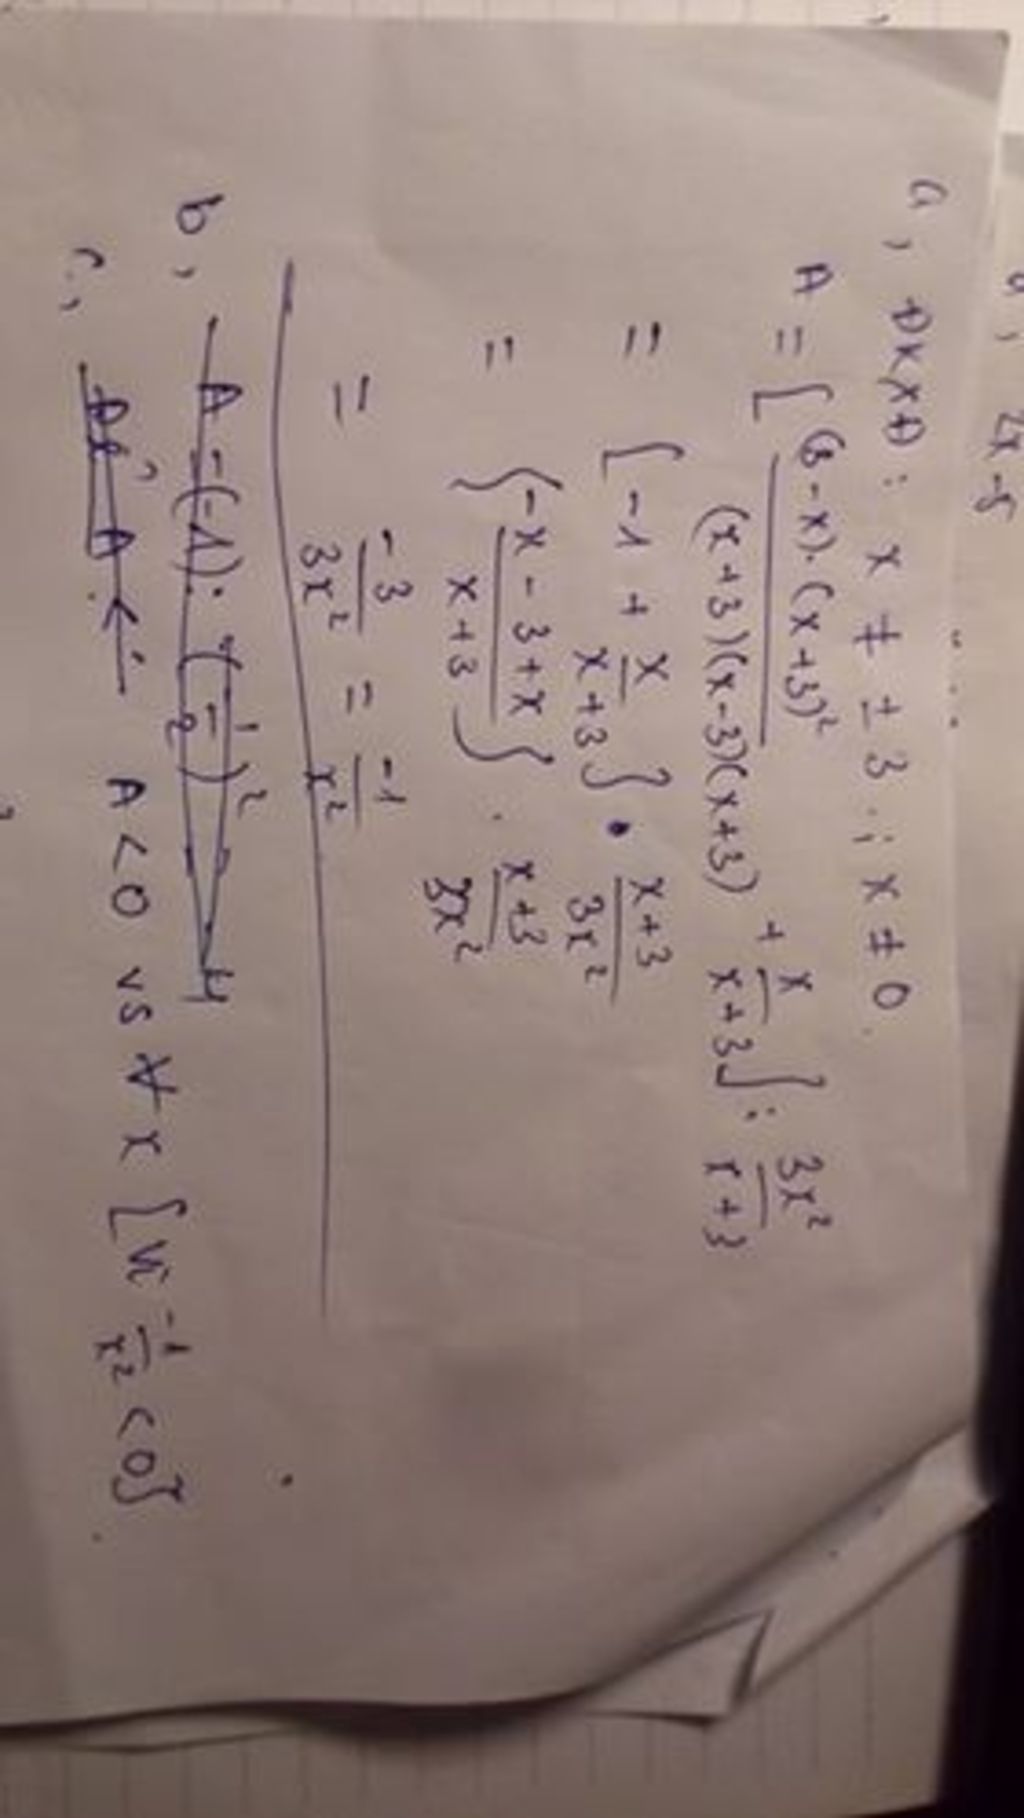 2x - 5
a, ĐKXĐ: x ≠ ± 3 ; x ≠ 0.
A = [ (3-x).(x+3)² / (x+3)(x-3)(x+3) + x / x+3 ] : 3x² / x+3
= [ -1 + x / x+3 ] . x+3 / 3x²
= [ -x - 3 + x / x+3 ] . x+3 / 3x²
= -3 / 3x² = -1 / x²
b, A = (-1) : (-1/2)² = 4
c, A < 0 vs ∀ x [ vì -1 / x² < 0 ]